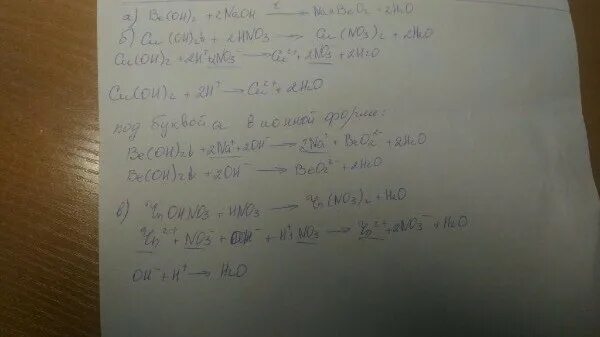 а) Be(OH)2 + 2NaOH → Na2BeO2 + 2H2O
б) Cu(OH)2↓ + 2HNO3 → Cu(NO3)2 + 2H2O
Cu(OH)2 + 2H⁺ + 2NO3⁻ → Cu²⁺ + 2NO3⁻ + 2H2O
Cu(OH)2 + 2H⁺ → Cu²⁺ + 2H2O
под буквой а в ионной форме:
Be(OH)2↓ + 2Na⁺ + 2OH⁻ → 2Na⁺ + BeO2²⁻ + 2H2O
Be(OH)2↓ + 2OH⁻ → BeO2²⁻ + 2H2O
в) ZnOHNO3 + HNO3 → Zn(NO3)2 + H2O
Zn²⁺ + NO3⁻ + OH⁻ + H⁺ + NO3⁻ → Zn²⁺ + 2NO3⁻ + H2O
OH⁻ + H⁺ → H2O